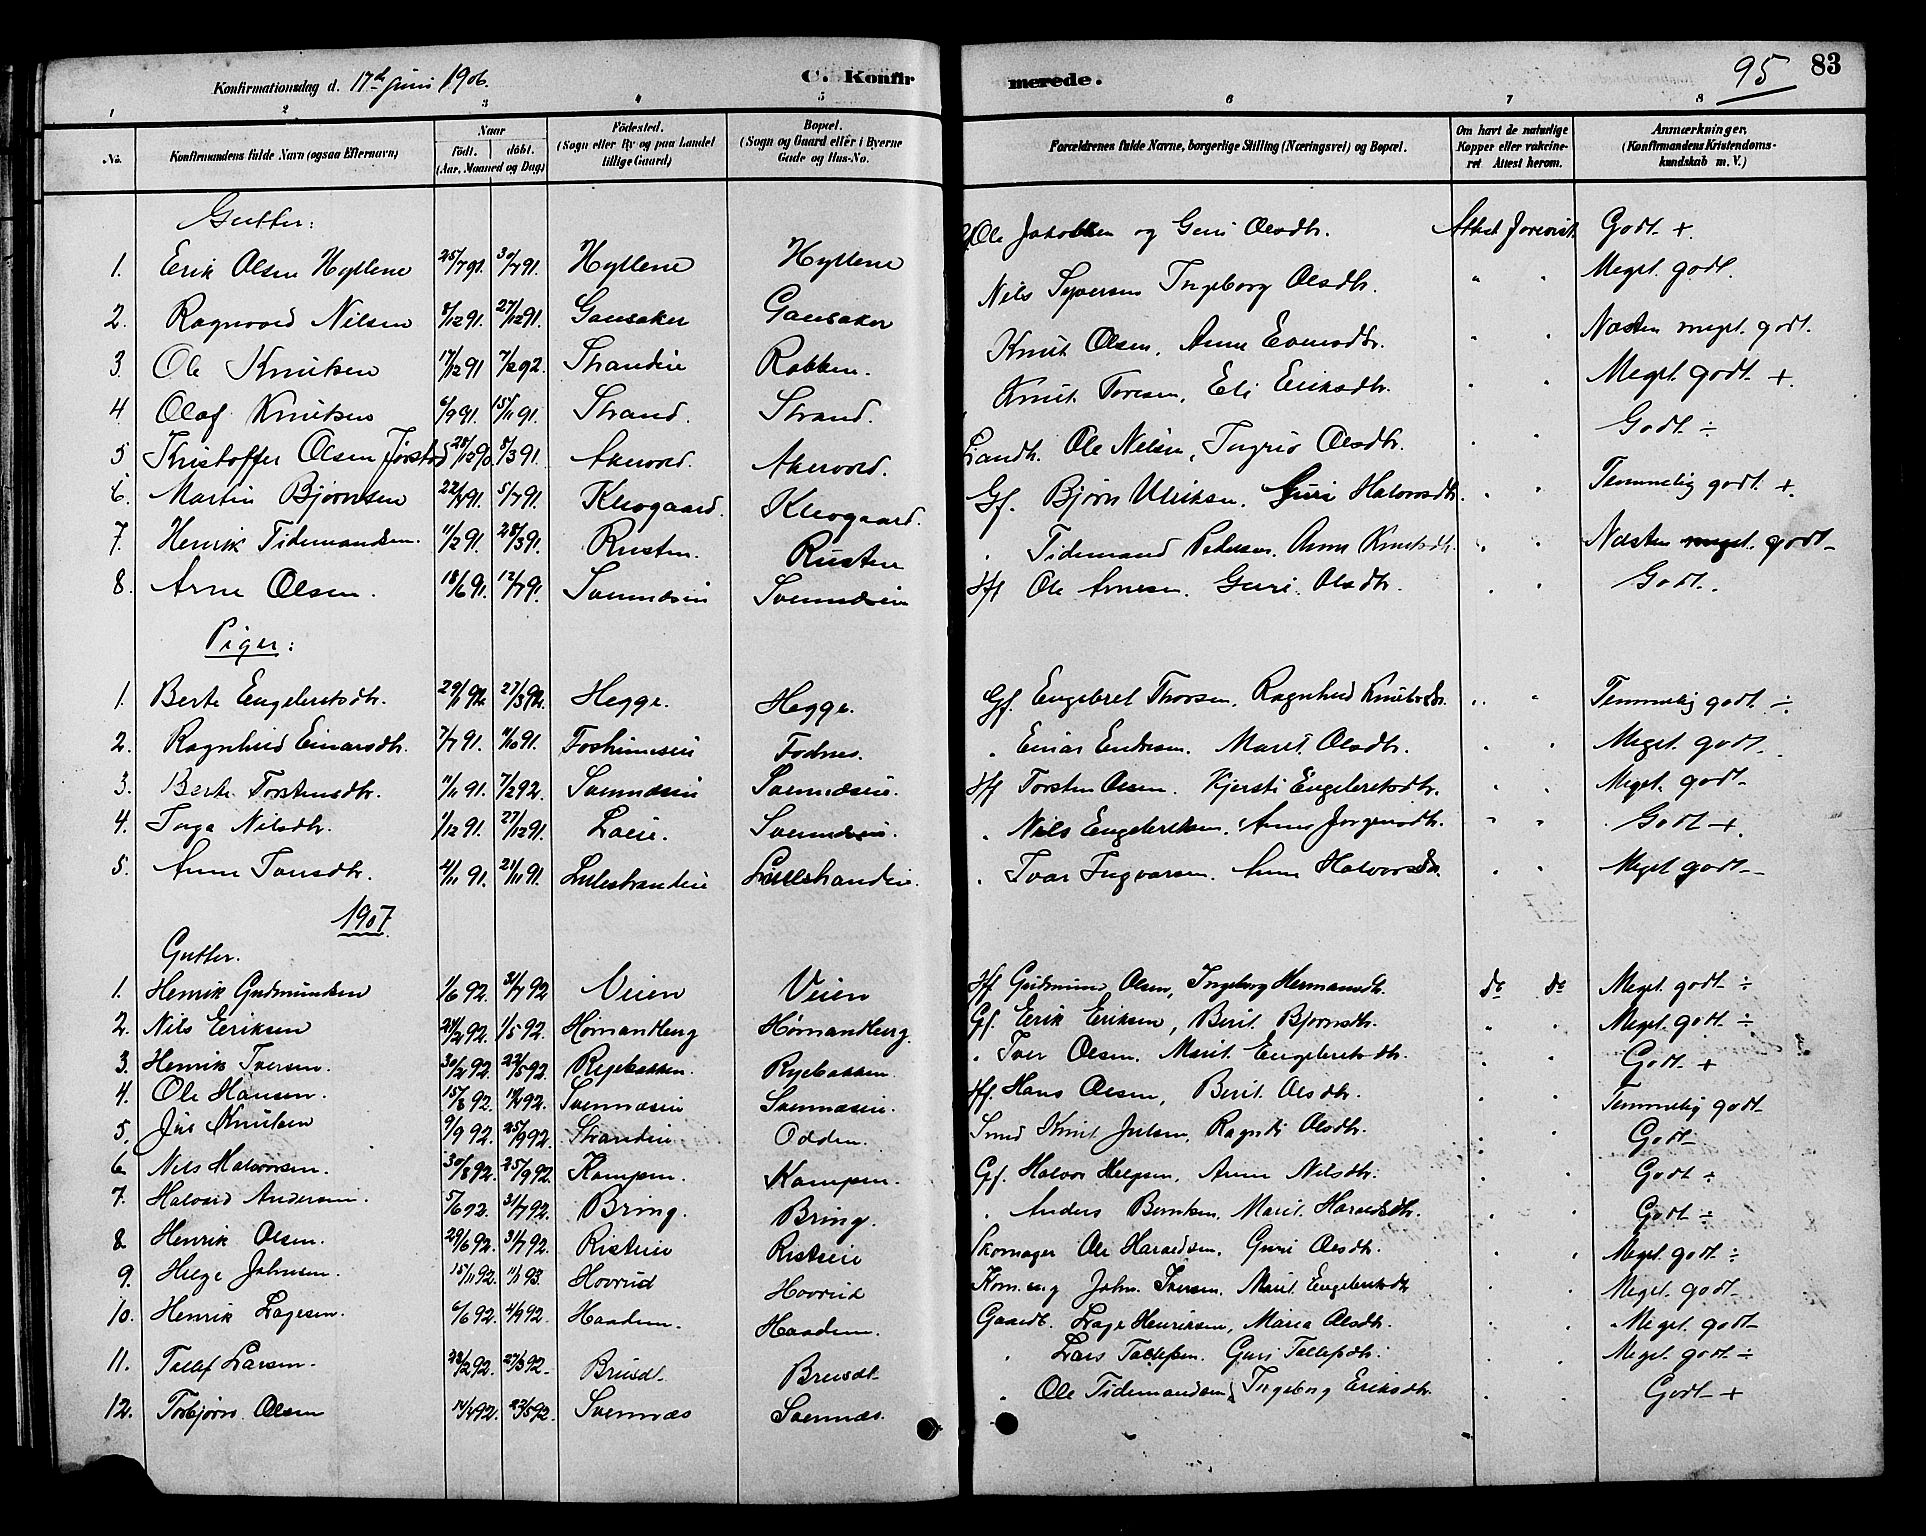 Konfirmationsdag d. 17de Juni 1906.
C. Konfirmerede.
95 83
1 2 3 4 5 6 7 8
No.
Konfirmandens fulde Navn (ogsaa Efternavn)
Naar
födt. döbt.
(Aar, Maaned og Dag)
Födested.
(Sogn eller By og paa Landet
tillige Gaard)
Bopæl.
(Sogn og Gaard eller i Byerne
Gade og Hus-No.
Forældrenes fulde Navne, borgerlige Stilling (Næringsvei) og Bopæl.
Om havt de naturlige
Kopper eller vakcine-
ret Attest herom.
Anmærkninger,
(Konfirmandens Kristendoms-
kundskab m. V.)
Gutter:
1. Erik Olsen Hyllene 25/7 91. 30/7 91. Hyllene Hyllene Ole Jakobsen og Guri Olsdtr. Attest forevist. Godt +.
2. Ragnvald Nilsen 8/12 91. 27/12 91. Gausaker Gausaker Nils Syversen Ingeborg Olsdtr. " " Meget godt.
3. Ole Knutsen 17/12 91 7/2 92. Strandeie Robken. Knut Olsen, Anne Evensdtr. " " Næsten meget godt.
4 Olaf Knutsen 6/9 91. 15/11 91. Strand. Strand. Knut Toresen, Eli Eriksdtr. " " Meget godt +.
5 Kristoffer Olsen Jørstad 28/12 90. 8/3 91. Akervold. Akervold. Landh. Ole Nilsen, Ingrid Olsdtr. " " Godt ÷
6. Martin Bjørnsen 5/7 91. Klevgaard. Klevgaard. Gf. Bjørn Ulriksen. Guri Halvorsdtr. " " Temmelig godt +.
7. Henrik Tidemandsen. 11/2 91. 28/3 91. Rusten. Rusten " Tidemand Pedersen. Anne Knutsdtr. " " Næsten meget godt
8. Arne Olsen. 18/6 91. 12/7 91. Svennæseie Svennæseie Hf Ole Arnesen. Guri Olsdtr. " " Godt.
Piger:
1. Berte Engebretsdtr. 29/1 92. 27/3 92. Hegge. Hegge. Gf. Engebret Thorsen, Ragnhild Knutsdtr. " " Temmelig godt ÷
2. Ragnhild Einarsdtr. 7/7 91. 11/10 91. Foshimseie Fodnes. " Einar Endresen. Marit Olsdtr. " " Meget godt.
3. Berte Torstensdtr. 11/11 91. 7/2 92. Svennæseie Svennæseie. Hf Torsten Olsen. Kjersti Engebretsdtr. " " Meget godt
4. Inga Nilsdtr. 1/12 91. 27/12 91. Loeie. Svennæseie. " Nils Engebretsen. Anne Jørgensdtr. " " Godt +.
5. Anne Ivarsdtr. 4/11 91. 21/11 91. Lillestrandeie Lillestrandeie. " Ivar Ingvarsen. Anne Halvorsdtr. " " Meget godt
1907
Gutter.
1. Henrik Gudmundsen 1/6 92. 31/7 92 Veien Veien Hf Gudmund Olsen, Ingeborg Hermansdtr. do do Meget godt ÷
2. Nils Eriksen 21/2 92. 1/5 92. Hømandberg Hømandberg. Gf. Erik Eriksen, Berit Bjørnsdtr. " " Meget godt ÷
3. Henrik Iversen. 22/5 92. Ryebakken. Ryebakken. " Iver Olsen. Marit Engebretsdtr. " " Godt +
4. Ole Hansen. 15/8 92. Svennæseie Svennæseie. Hf. Hans Olsen, Berit Olsdtr. " " Temmelig godt
5. Jul Knutsen 9/9 92. 25/9 92. Strandeie Odden. Smed Knut Julsen, Ragndi Olsdtr. " " Godt
6 Nils Halvorsen. 30/8 92. 25/9 92. Kampen. Kampen. Gf. Halvor Helgesen, Anne Nilsdtr. " " Godt ÷
7. Halvard Andersen. 5/6 92. 31/7 92. Bring. Bring. " Anders Berntsen, Marit Haraldsdtr. " " Godt ÷
8 Henrik Olsen. 29/6 92. 31/7 92. Risteie Risteie Skomager Ole Haraldsen. Guri Olsdtr. " " Meget godt ÷
9. Helge Johnsen. 15/11 92. 1/1 93. Hovrud Hovrud John Iversen. Marit Engebretsdtr " " Meget godt
10. Henrik Lagesen. 6/6 92. 4/9 92. Haadem. Haadem. Gaardb. Lage Henriksen, Maria Olsdtr. " " Meget godt
11. Tollef Larsen. 23/2 92. 27/3 92. Brusdt. Brusdt. " Lars Tollefsen. Guri Tollefsdtr. " " Meget godt ÷
12. Torbjørn Olsen 14/4 92. 22/5 92. Svennæs Svennæs. " Ole Tidemandsen, Ingeborg Eriksdtr. " " Godt +